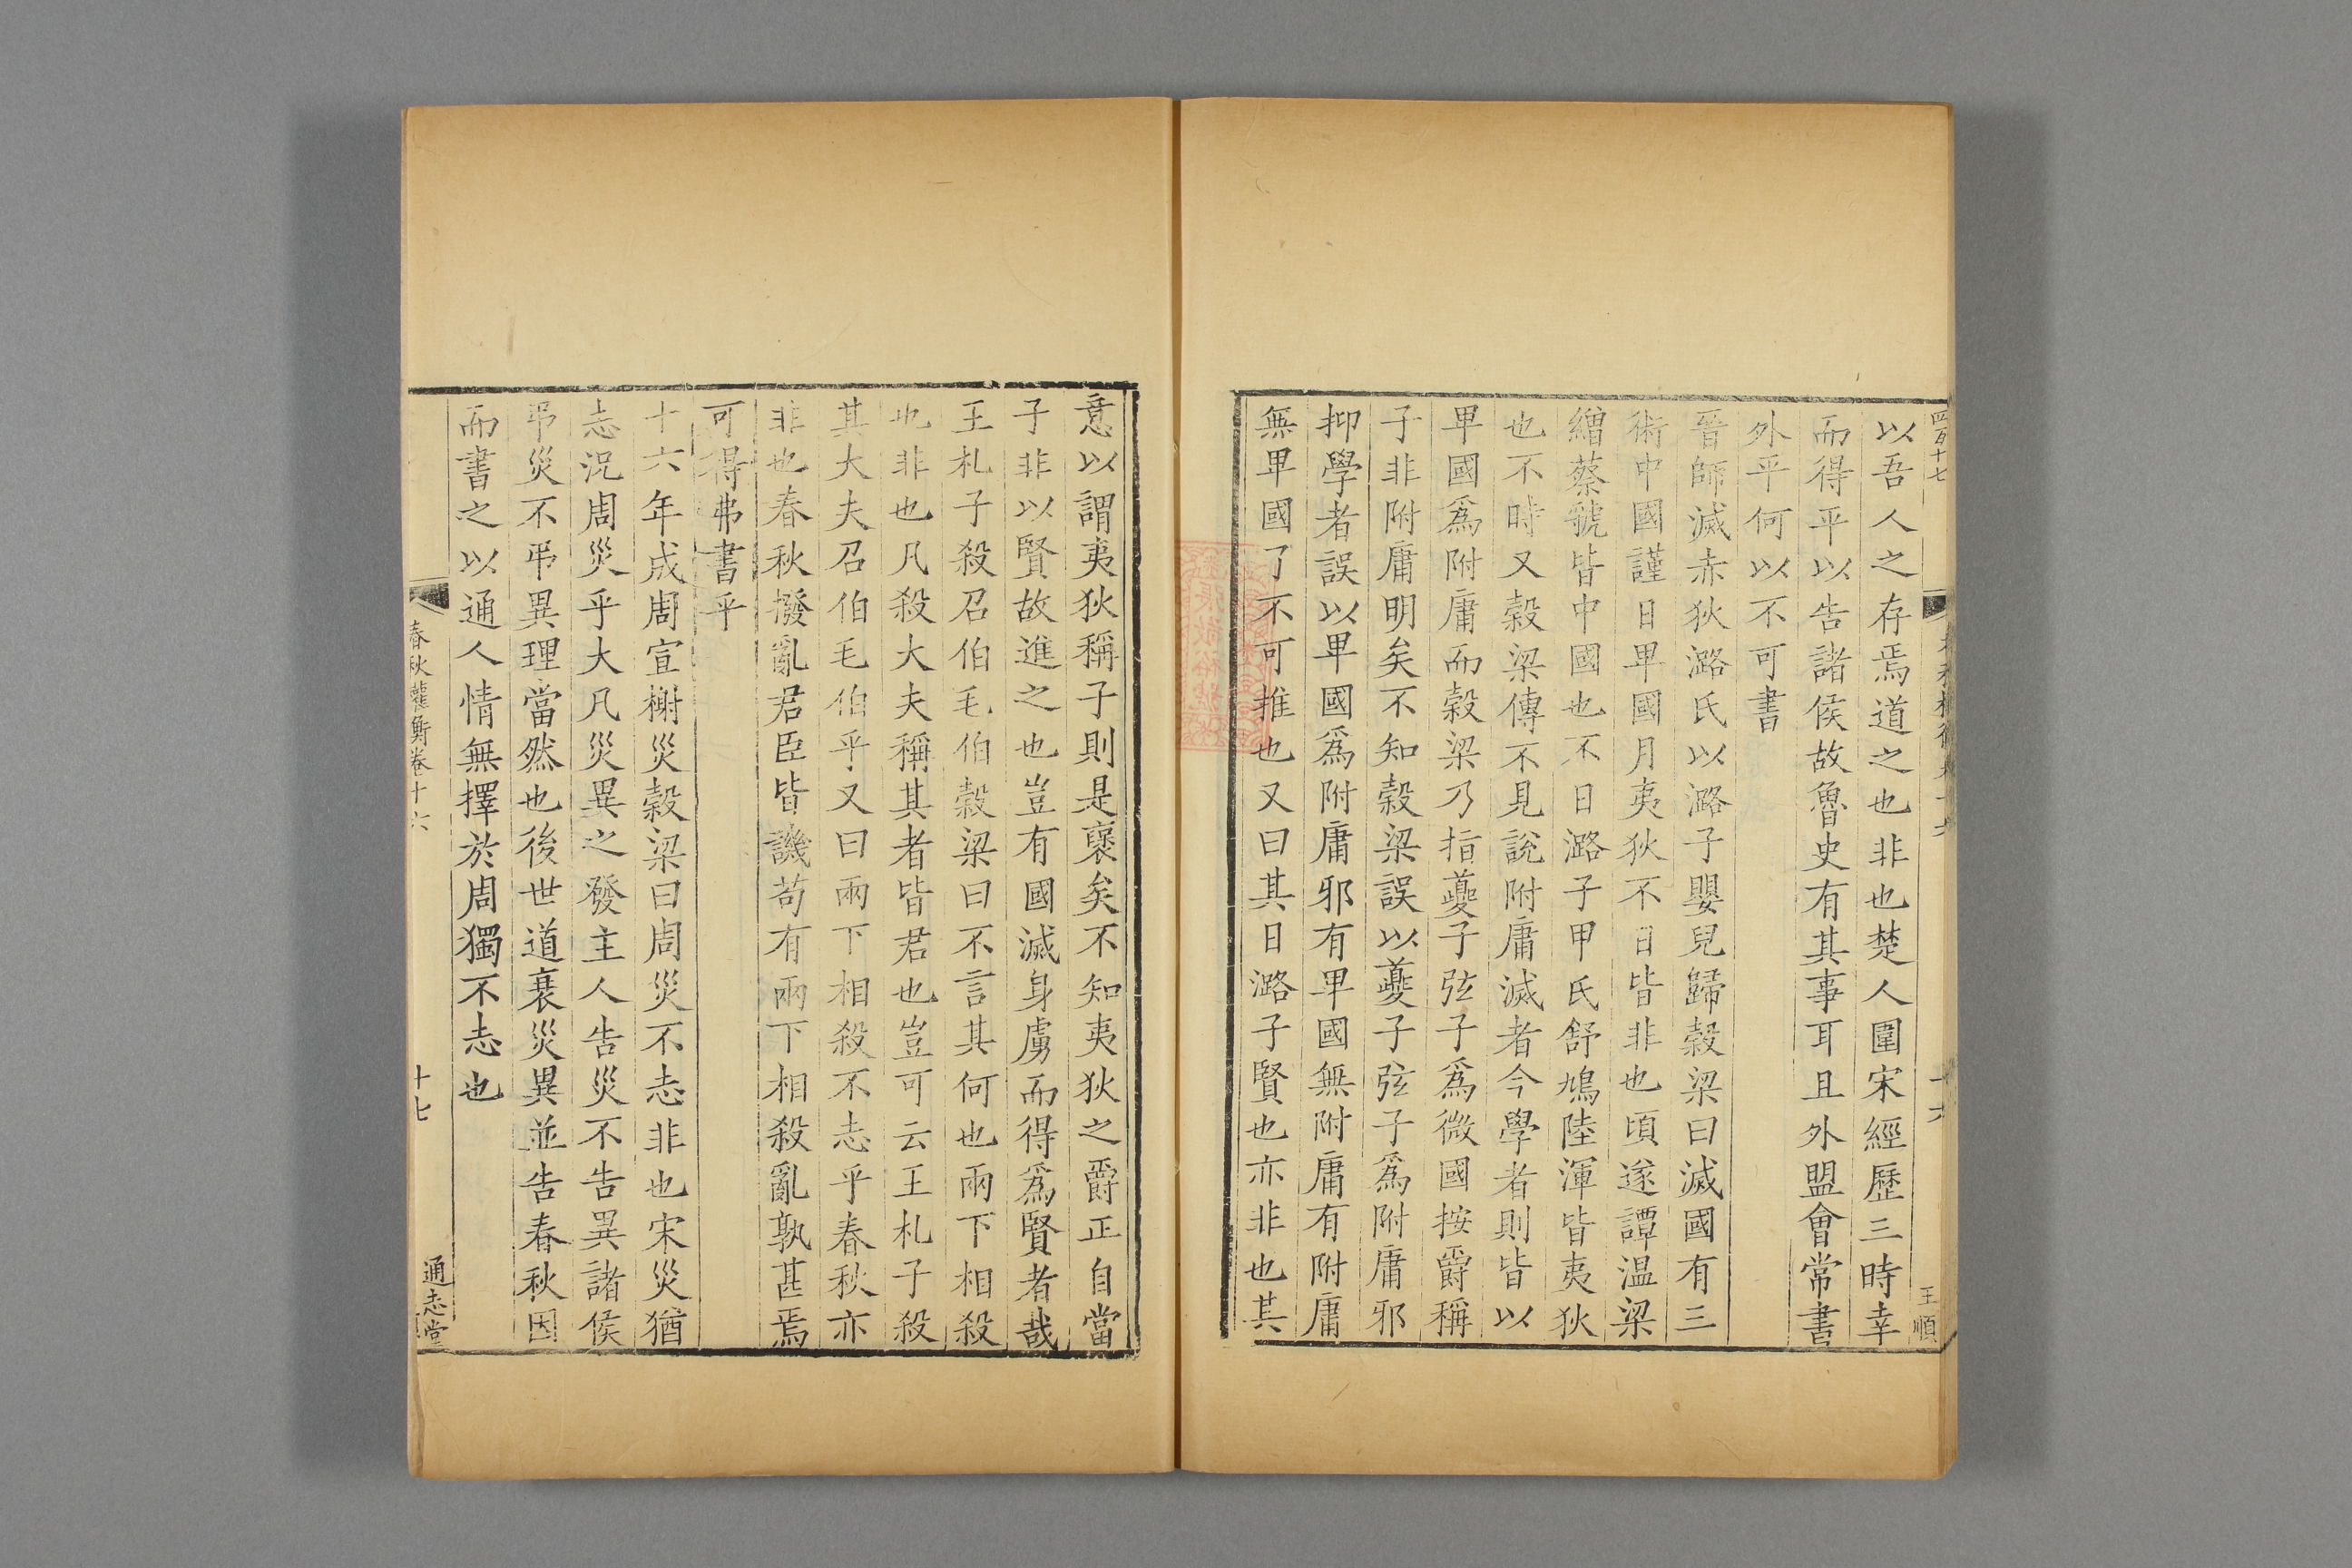 四百十七
王順
以吾人之存焉道之也非也楚人圍宋經歷三時幸
而得平以告諸侯故魯史有其事耳且外盟會常書
外平何以不可書
晉師滅赤狄潞氏以潞子嬰兒歸穀梁曰滅國有三
術中國謹日卑國月夷狄不日皆非也頃遂譚温梁
繒蔡虢皆中國也不日潞子甲氏舒鳩陸渾皆夷狄
也不時又穀梁傳不見說附庸滅者今學者則皆以
卑國爲附庸而穀梁乃指夔子弦子爲微國按爵稱
子非附庸明矣不知穀梁誤以夔子弦子爲附庸邪
抑學者誤以卑國爲附庸邪有卑國無附庸有附庸
無卑國了不可推也又曰其日潞子賢也亦非也其
意以謂夷狄稱子則是褒矣不知夷狄之爵正自當
子非以賢故進之也豈有國滅身虜而得爲賢者哉
王札子殺召伯毛伯穀梁曰不言其何也兩下相殺
也非也凡殺大夫稱其者皆君也豈可云王札子殺
其大夫召伯毛伯乎又曰兩下相殺不志乎春秋亦
非也春秋撥亂君臣皆譏苟有兩下相殺亂孰甚焉
可得弗書乎
十六年成周宣榭災穀梁曰周災不志非也宋災猶
志況周災乎大凡災異之發主人告災不告異諸侯
弔災不弔異理當然也後世道衰災異並告春秋因
而書之以通人情無擇於周獨不志也
春秋權衡卷十六
十七
通志堂